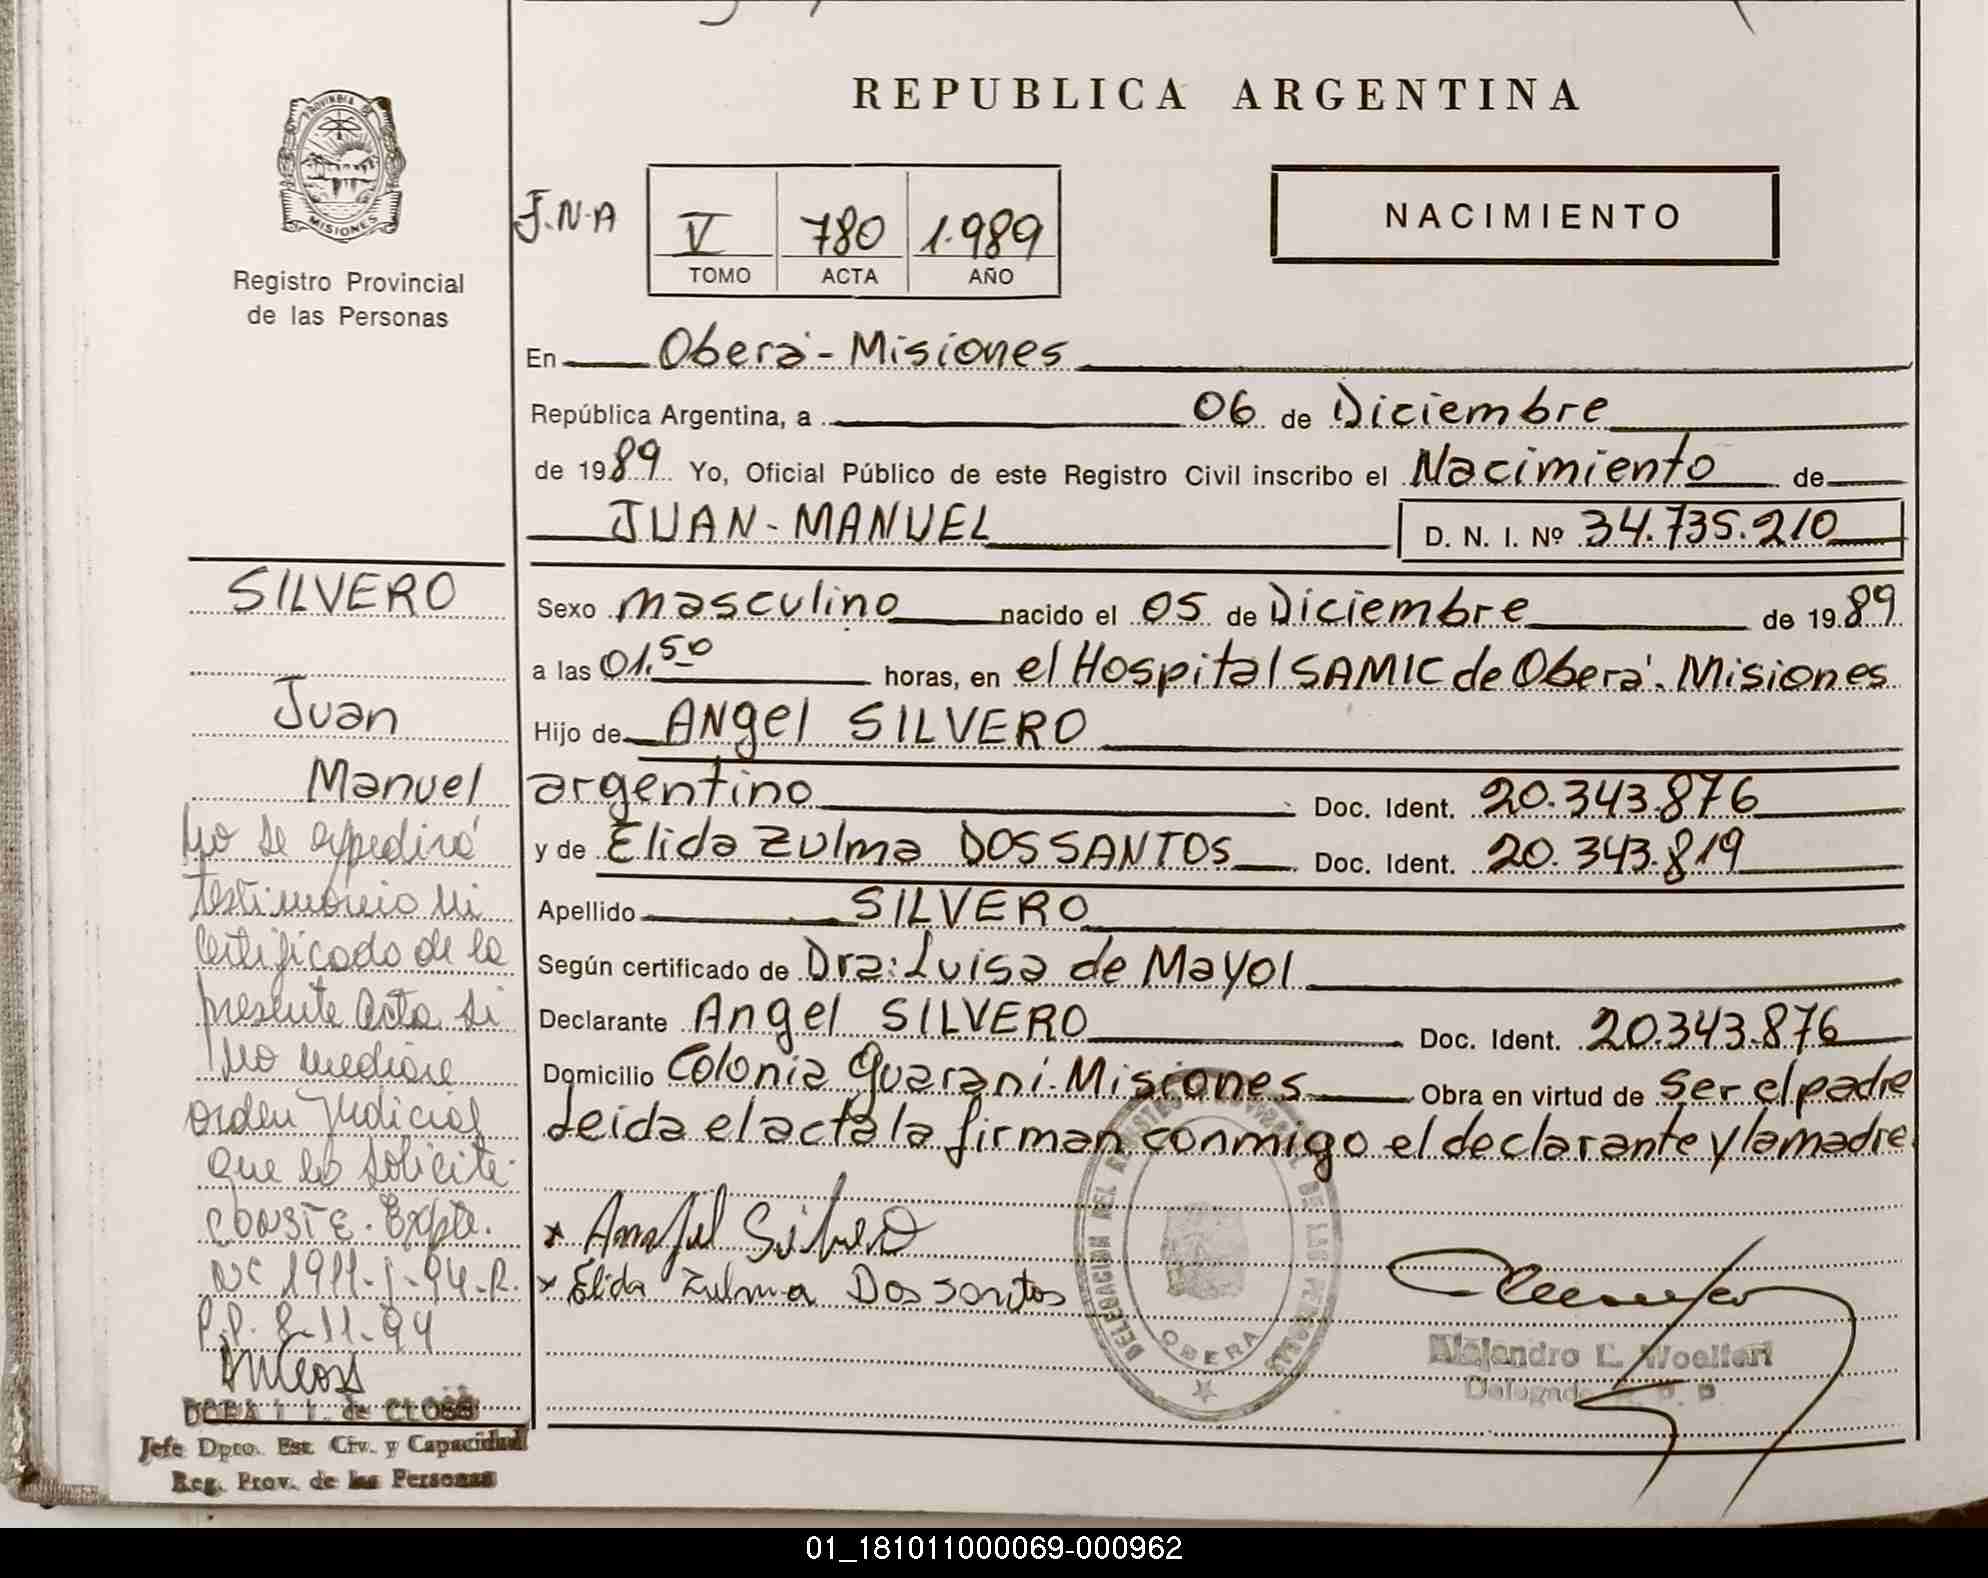 REPUBLICA ARGENTINA
PROVINCIA DE
MISIONES
Registro Provincial
de las Personas
J.N.A
V 780 1.989
TOMO ACTA AÑO
NACIMIENTO
En Oberá - Misiones
República Argentina, a 06 de Diciembre
de 1989 Yo, Oficial Público de este Registro Civil inscribo el Nacimiento de
JUAN - MANUEL D. N. I. Nº 34.735.210
Sexo masculino nacido el 05 de Diciembre de 1989
a las 01.50 horas, en el Hospital SAMIC de Oberá. Misiones
Hijo de Angel SILVERO
argentino Doc. Ident. 20.343.876
y de Elida Zulma DOS SANTOS Doc. Ident. 20.343.819
Apellido SILVERO
Según certificado de Dra: Luisa de Mayol
Declarante Angel SILVERO Doc. Ident. 20.343.876
Domicilio Colonia Guaraní. Misiones Obra en virtud de ser el padre
Leida el acta la firman conmigo el declarante y la madre
x Angel Silvero
x Elida Zulma Dos santos
DELEGACION DEL REGISTRO PROVINCIAL DE LAS PERSONAS
OBERA
Alejandro L.
Delegado R. P. P.
SILVERO
Juan
Manuel
No se expedirá
testimonio ni
certificado de la
presente acta si
no mediare
orden judicial
que lo solicite.
CONSTE. Expte.
Nº 1911-J-94-R.
P.P. 8-11-94
DORA de CLOSS
Jefe Dpto. Est. Civ. y Capacidad
Reg. Prov. de las Personas
01_181011000069-000962